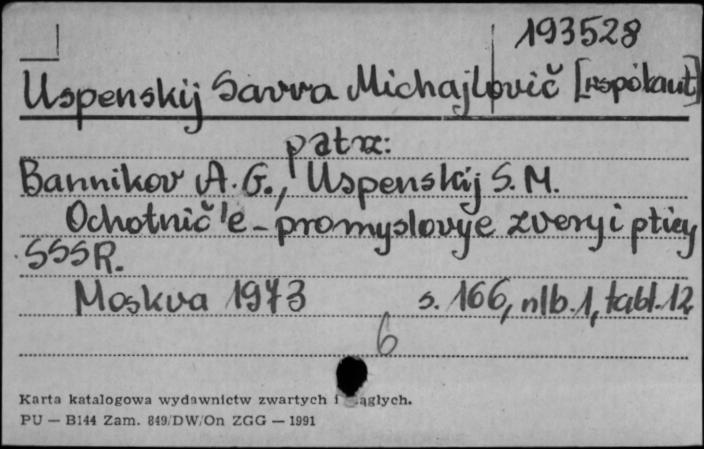 193528
Uspenskij Savva Michajlovič [współaut]
patrz:
Bannikov A. G., Uspenskij S. M.
Ochotnič'e-promyslovye zvery i pticy
SSSR.
Moskva 1973 s. 166, nlb. 1, tabl. 12
6
Karta katalogowa wydawnictw zwartych i ciągłych.
PU — B144 Zam. 849/DW/On ZGG — 1991